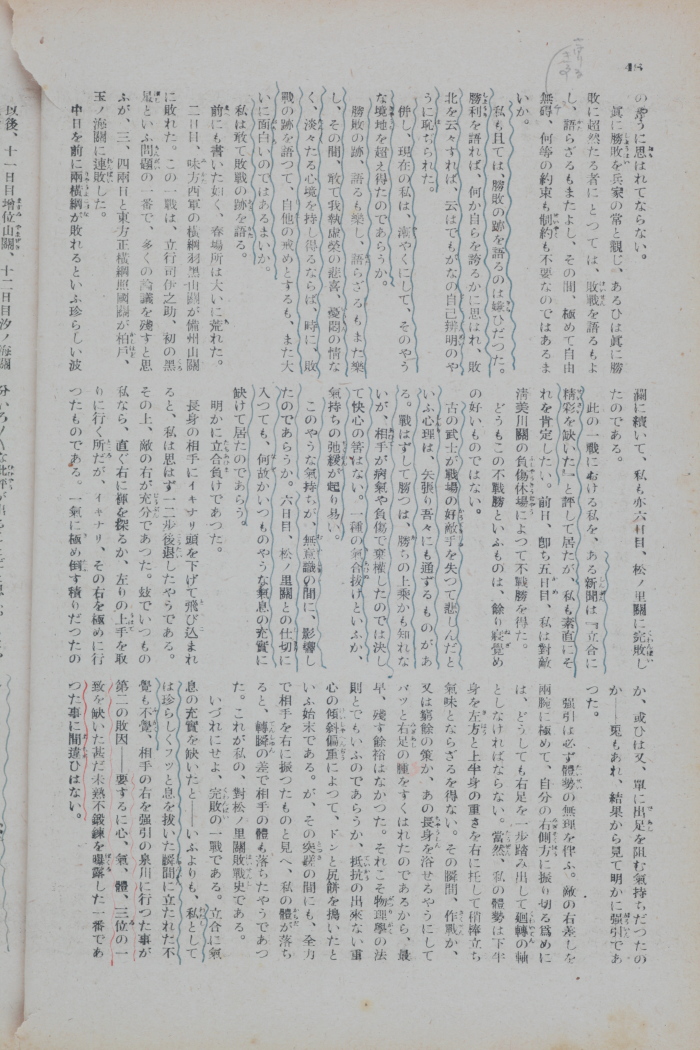 48
のやうに思はれてならない。
眞に勝敗を兵家の常と觀じ、あるひは眞に勝
敗に超然たる者にとつては、敗戰を語るもよ
し、語らざるもまたよし、その間、極めて自由
無碍、何等の約束も制約も不要なのではあるま
いか。
私も且ては、勝敗の跡を語るのは嫌ひだつた。
勝利を語れば、何か自らを誇るかに思はれ、敗
北を云々すれば、云はでもがなの自己辯明のや
うに恥ぢられた。
併し、現在の私は、漸やくにして、そのやう
な境地を超え得たのであらうか。
勝敗の跡、語るも樂し、語らざるもまた樂
し、その間、敢て我執虛榮の悲喜、憂悶の情な
く、淡々たる心境を持し得るならば、時に、敗
戰の跡を語つて、自他の戒めとするも、また大
いに面白いのではあるまいか。
私は敢て敗戰の跡を語る。
前にも書いた如く、春場所は大いに荒れた。
二日目、味方西軍の橫綱羽黑山關が備州山關
に敗れた。この一戰は、立行司伊之助、初の黑
星といふ問題の一番で、多くの論議を殘すと思
ふが、三、四兩日と東方正橫綱照國關が柏戶、
玉ノ海關に連敗した。
中日を前に兩橫綱が敗れるといふ珍らしい波
瀾に續いて、私も亦六日目、松ノ里關に完敗し
たのである。
此の一戰における私を、ある新聞は『立合に
精彩を缺いた』と評して居たが、私も素直にそ
れを肯定したい。前日、卽ち五日目、私は對敵
淸美川關の負傷休場によつて不戰勝を得た。
どうもこの不戰勝といふものは、餘り寢覺め
の好いものではない。
古の武士が戰場の好敵手を失つて悲しんだと
いふ心理は、矢張り吾々にも通ずるものがあ
る。戰はずして勝つは、勝ちの上乘かも知れな
いが、相手が病氣や負傷で棄權したのでは決し
て快心の筈はない。一種の氣合拔けといふか、
氣持ちの弛緩が起り易い。
このやうな氣持ちが、無意識の間に、影響し
たのであらうか。六日目、松ノ里關との仕切に
入つても、何故かいつものやうな氣息の充實に
缺けて居たのであらう。
明かに立合負けであつた。
長身の相手にイキナリ頭を下げて飛び込まれ
ると、私は思はず一二步後退したやうである。
その上、敵の右が充分であつた。玆でいつもの
私なら、直ぐ右に褌を探るか、左りの上手を取
りに行く所だが、イキナリ、その右を極めに行
つたものである。一氣に極め倒す積りだつたの
か、或ひは又、單に出足を阻む氣持ちだつたの
か――兎もあれ、結果から見て明かに强引であ
つた。
强引は必ず體勢の無理を伴ふ。敵の右差しを
兩腕に極めて、自分の右側方に振り切る爲めに
は、どうしても右足を一步踏み出して廻轉の軸
としなければならない。當然、私の體勢は下半
身を左方と上半身の重さを右に托して稍棒立ち
氣味とならざるを得ない。その瞬間、作戰か、
又は窮餘の策か、あの長身を浴せるやうにして
パッと右足の踵をすくはれたのであるから、最
早、殘す餘裕はなかつた。それこそ物理學の法
則とでもいふのであらうか、抵抗の出來ない重
心の傾斜偏重によつて、ドンと尻餅を搗いたと
いふ始末である。が、その突嗟の間にも、全力
で相手を右に振つたものと見へ、私の體が落ち
ると、轉瞬の差で相手の體も落ちたやうであつ
た。これが私の、對松ノ里關敗戰史である。
いづれにせよ、完敗の一戰である。立合に氣
息の充實を缺いたと――いふよりも、私として
は珍らしくフッと息を拔いた瞬間に立たれた不
覺も不覺、相手の右を强引の泉川に行つた事が
第二の敗因――要するに心、氣、體、三位の一
致を缺いた甚だ未熟不鍛練を曝露した一番であ
つた事に間違ひはない。
以後、十一日目增位山關、十二日目汐ノ海關